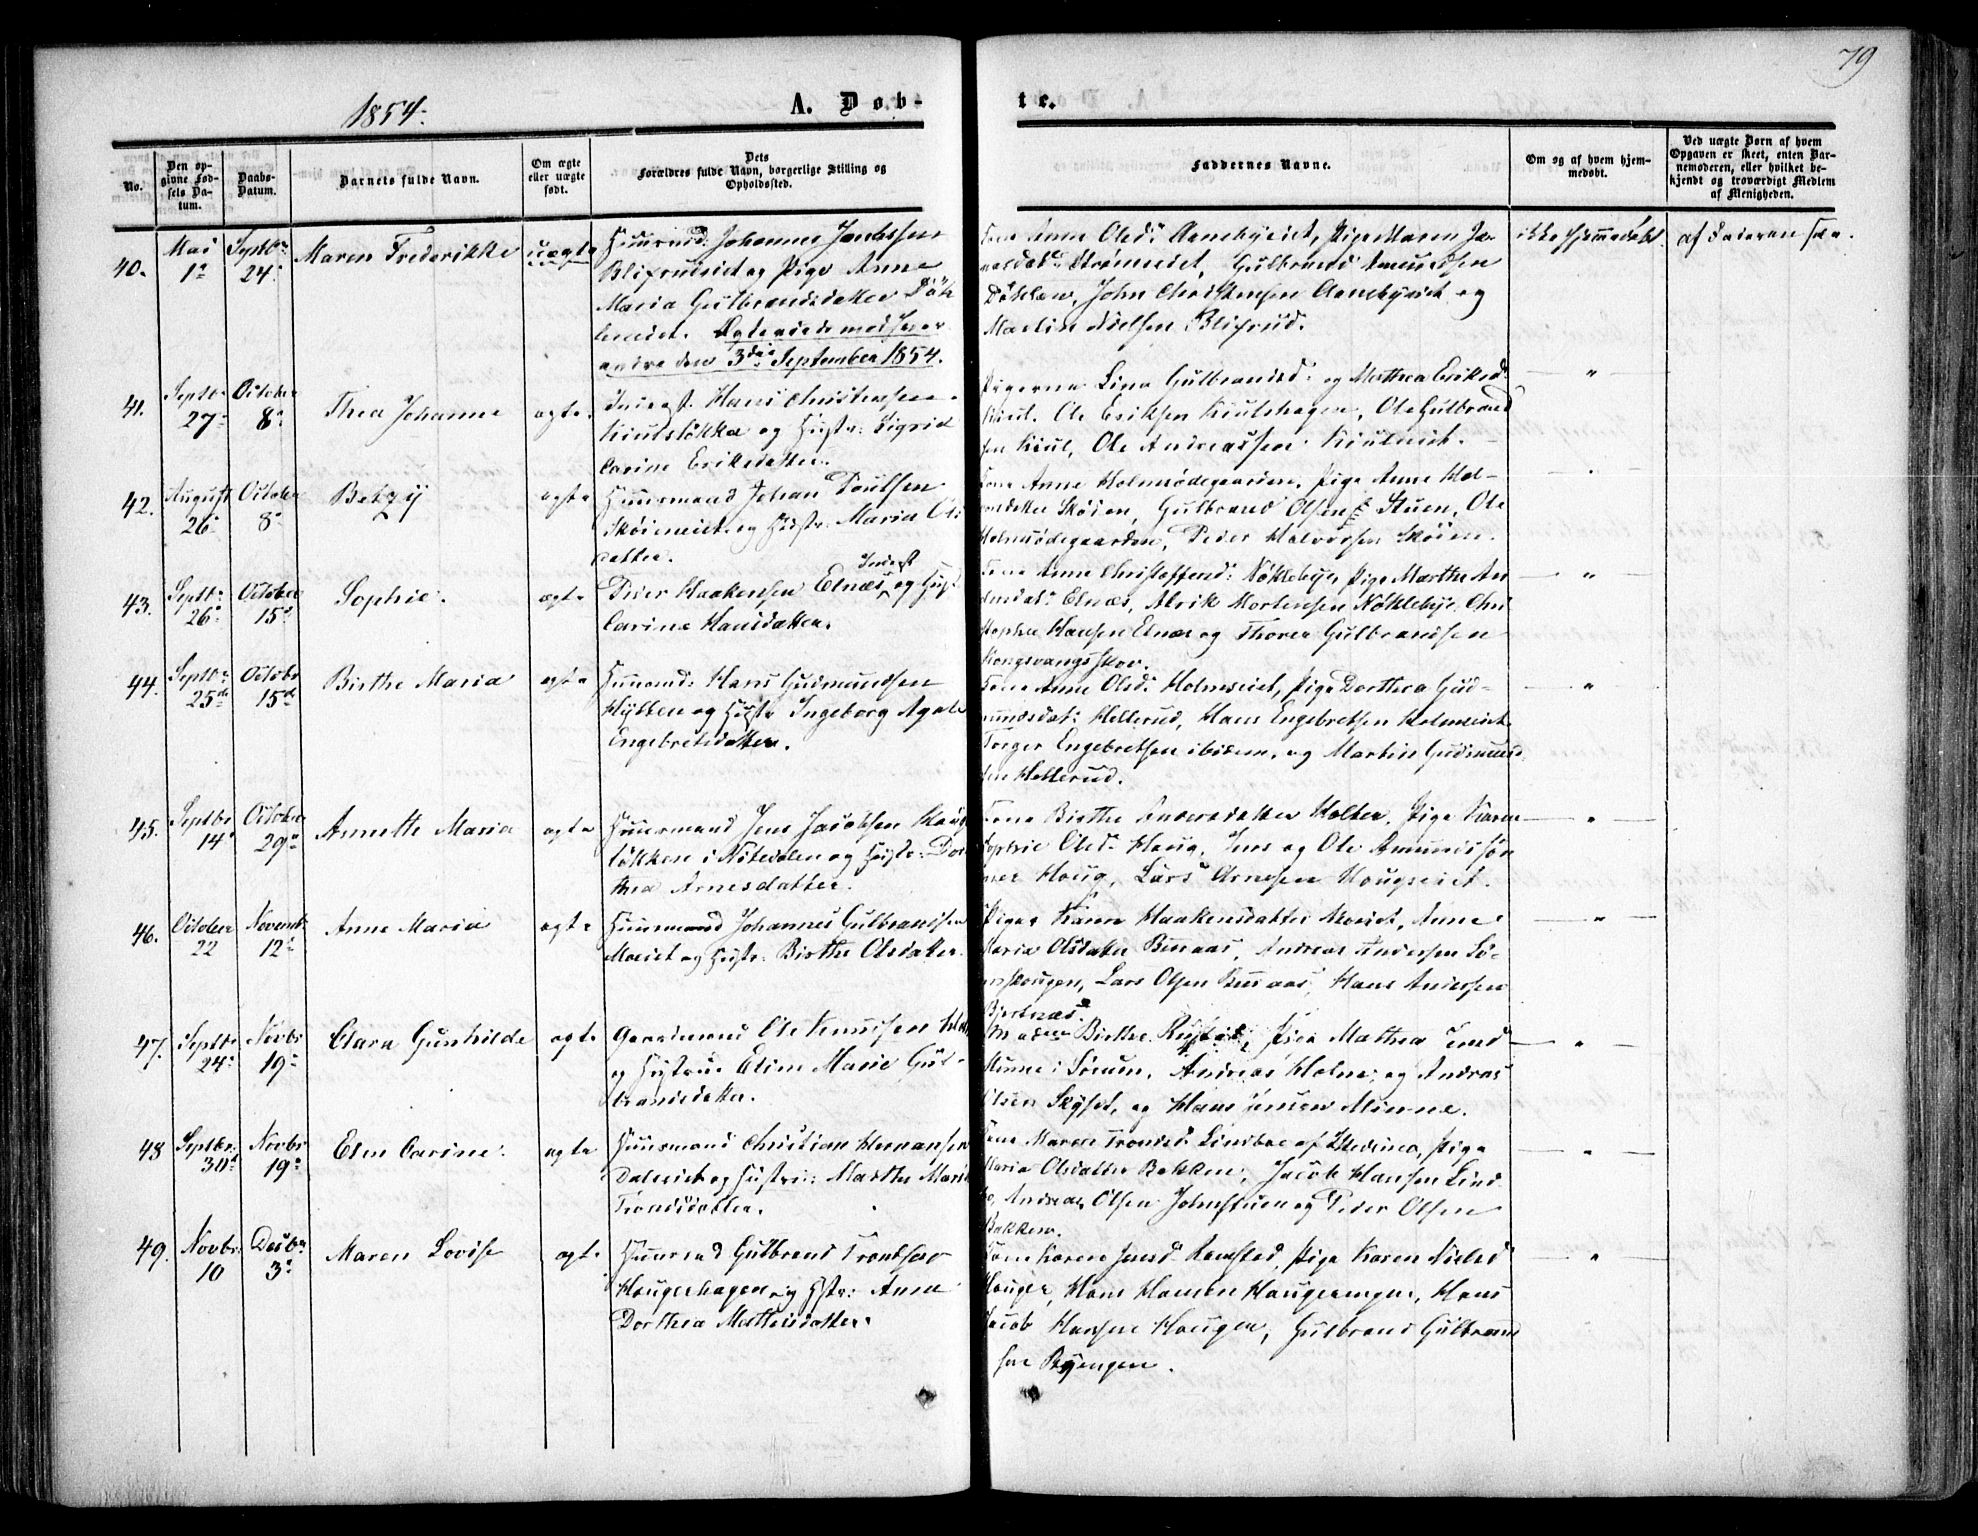 79
1854.
A. Døb-
te.
No.
Den op-
givne Fød-
sels Da-
tum.
Daabs-
Datum.
Barnets fulde Navn.
Om ægte
eller uægte
født.
Dets
Forældres fulde Navn, borgerlige Stilling og
Opholdssted.
Faddernes Navne.
Om og af hvem hjem-
medøbt.
Ved uægte Børn af hvem
Opgaven er skeet, enten Bar-
nemoderen, eller hvilket be-
kjendt og troværdigt Medlem
af Menigheden.
40.
Mai
1
Septbr
24
Maren Frederikke
uægte
Johannes Jacobsen
og Pige Anne
Maria Gulbrandsdatter
andre den 3die September 1854.
Anne Olsd. Pige Maren
Gulbrand Amundsen
John Christensen og
Martin Nielsen Blixrud.
ikke hjemmedøbt.
af Faderen
41.
Septbr
27
October
8
Thea Johanne
ægte
Inderst. Hans Christensen
og Hustr: Sigrid
Carine Eriksdatter.
Pigerne Lina Gulbrandsd. og Mathea Eriksd.
Kiul. Ole Eriksen Kiulshagen, Ole Gulbrand
sen Kiul, Ole Andreassen Kiulseiet.
42.
August
26
October
8
Betzy
ægte
Huusmand Johan Poulsen
Skøieneiet og Hustr: Maria Ols
datter.
Anne Holmsødegaarden, Pige Anne Hal-
vorsdatter Skøien, Gulbrand Olsen Stuen, Ole
Holmsødegaarden, Peder Halvorsen Skøien.
43.
Septbr
26
October
15
Sophie.
ægte
Inderst
Peder Haakensen Elnæs og Hust
Carine Hansdatter.
Kone Anne Christoffersd: Nøklebye, Pige Marthe An
Elnæs, Alrik Mortensen Nøklebye, Chri
stopher Hansen Elnæs og Thorer Gulbrandsen
Kongsvangsskov.
44.
Septbr
25de
October
15de
Birthe Maria
ægte
Huusmd: Hans Gudmundsen
Hytten og Hustr Ingeborg Agate
Engebretsdatter.
Kone Anne Olsd. Holmseiet, Pige Dorthea Gud-
mundsdat: Hellerud, Hans Engebretsen Holmseiet
Torger Engebretsen ibidem, og Martin Gudmund
sen Hellerud.
45.
Septbr
14
October
29
Annette Maria
ægte
Huusmand Jens Jacobsen Haug
løkken i Nitedalen og Hustr: Dor
thea Arnesdatter.
Kone Birthe Andersdatter Holter, Pige Karen
Sophie Olsd. Haug, Jens og Ole Amundssøn
ner Haug, Lars Arnesen Haugseiet.
46.
October
22
Novembr
12
Anne Maria
ægte
Huusmand Johannes Gulbrandsen
Moeiet og Hustr: Birthe Olsdatter.
Piger Karen Haakensdatter Moeiet, Anne
Maria Olsdatter Bunaas, Andreas Andersen
Lars Olsen Bunaas, Hans Andersen
Bjertnæs.
47.
Septbr
24
Novbr
19
Clara Gunhilde
ægte
Gaardmand Ole Knudsen
og Hustrue Eline Marie Gul-
brandsdatter.
Madam Birthe Pige Mathea
Minne i Sørum, Andreas Holme, og Andreas
Olsen Skyset, og Hans Jensen Minne.
48
Septbr
30
Novbr
19
Elen Carine.
ægte
Huusmand Christian Hermansen
Daleeiet og Hustru: Marthe Marie
Trondsdatter.
Kone Maren Trondsd. Lindboe af Hedrum, Pige
Maria Olsdatter Bakken, Jacob Hansen Lind
bo, Andreas Olsen Johnstuen og Peder Olsen
Bakken.
49.
Novbr
10
Decbr
3
Maren Lovise
ægte
Huusmd Gulbrand Trondsen
Haugerhagen og Hstr: Anne
Dorthea Mathisdatter.
Kone Karen Jensd. Ramstad, Pige Karen Nielsd
Hauger, Hans Hansen Haugerengen, Hans
Jacob Hansen Haugen, Gulbrand Gulbrand
sen Ryengen.